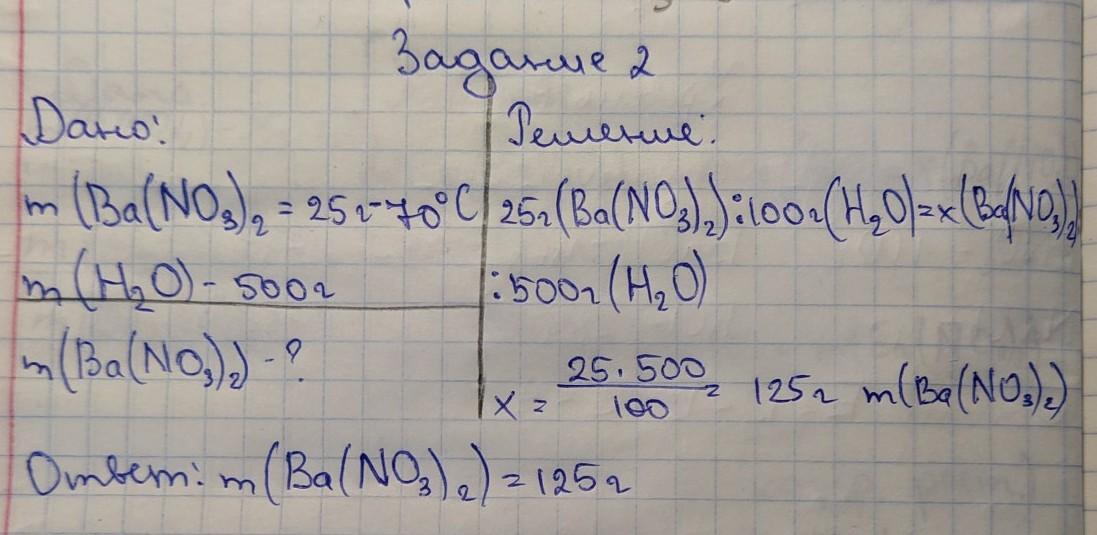 Задание 2
Дано:
m(Ba(NO₃)₂ = 25г - 70°C
m(H₂O) - 500г
m(Ba(NO₃)₂) - ?
Решение:
25г(Ba(NO₃)₂):100г(H₂O)=x(Ba(NO₃)₂)
:500г(H₂O)
x = 25·500/100 = 125г m(Ba(NO₃)₂)
Ответ: m(Ba(NO₃)₂) = 125г